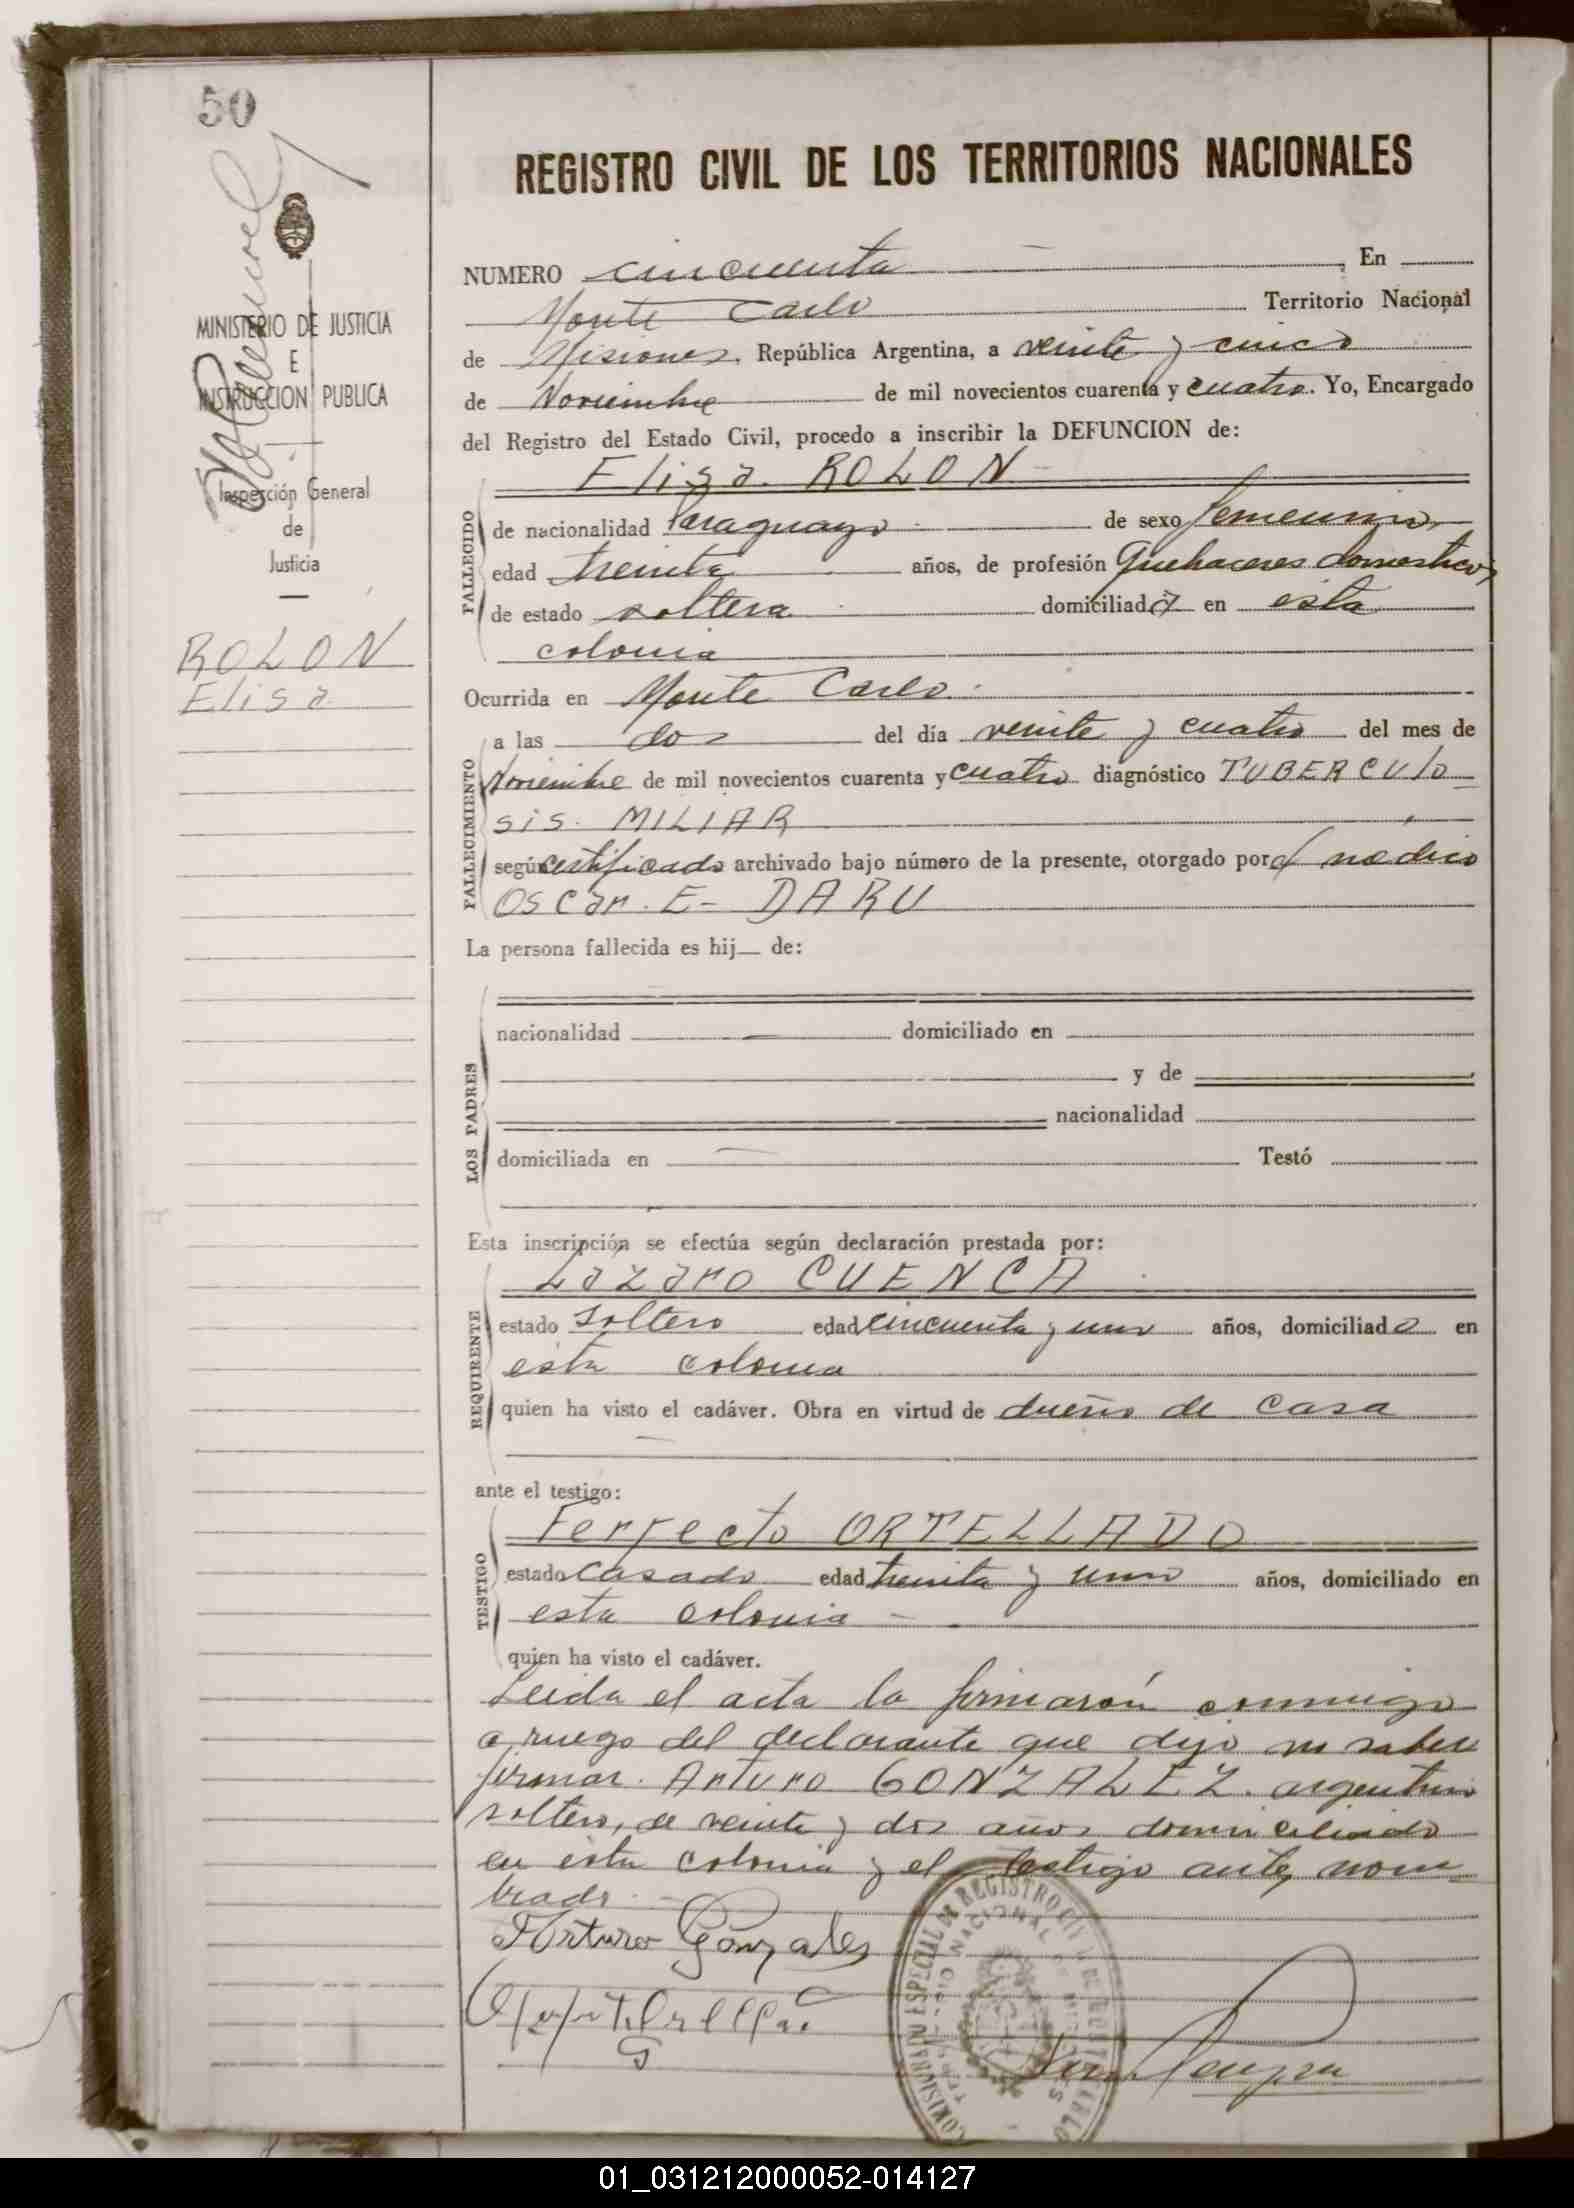 50
MINISTERIO DE JUSTICIA
E
INSTRUCCION PUBLICA
Inspección General
de
Justicia
ROLON
Elisa
REGISTRO CIVIL DE LOS TERRITORIOS NACIONALES
NUMERO cincuenta , En
Monte Carlo Territorio Nacional
de Misiones, República Argentina, a veinte y cinco
de Noviembre de mil novecientos cuarenta y cuatro. Yo, Encargado
del Registro del Estado Civil, procedo a inscribir la DEFUNCION de:
Elisa. ROLON
FALLECIDO
de nacionalidad Paraguaya de sexo femenino,
edad treinta años, de profesión Quehaceres domesticos
de estado soltera domiciliada en esta
colonia
Ocurrida en Monte Carlo.
FALLECIMIENTO
a las dos del día veinte y cuatro del mes de
Noviembre de mil novecientos cuarenta y cuatro diagnóstico TUBERCULO
SIS. MILIAR
según certificado archivado bajo número de la presente, otorgado por el médico
Oscar. E- DARU
La persona fallecida es hij de:
LOS PADRES
nacionalidad domiciliado en
y de
nacionalidad
domiciliada en Testó
Esta inscripción se efectúa según declaración prestada por:
REQUIRENTE
Lázaro CUENCA
estado soltero edad cincuenta y uno años, domiciliado en
esta colonia
quien ha visto el cadáver. Obra en virtud de dueño de casa
ante el testigo:
TESTIGO
Perfecto ORTELLADO
estado casado edad treinta y uno años, domiciliado en
esta colonia
quien ha visto el cadáver.
Leida el acta la firmarón conmigo
a ruego del declarante que dijo no saber
firmar. Arturo GONZALEZ. argentino
soltero, de veinte y dos años domiciliado
en esta colonia y el testigo antes nom
brado.
Arturo Gonzales
01_031212000052-014127